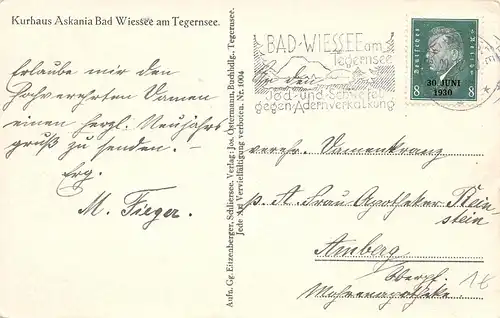 Kurhaus Askania Bad Wiessee am Tegernsee.
Erlaube mir den
Hochverehrten Damen
einen herzl. Neujahrs
gruß zu senden. –
Erg.
M. Fieger.
Aufn. Gg. Eitzenberger, Schliersee. Verlag: Jos. Ostermann, Buchhdlg., Tegernsee.
Jede Art Vervielfältigung verboten. Nr. 1004
BAD-WIESSEE am
Tegernsee
Jod- und Schwefel
gegen Adernverkalkung
Deutsches Reich
30. JUNI
1930
8 8
An den
verehr. Damenkranz
p. A. Frau Apotheker Klein
stein
Amberg
Oberpf.
Mohrenapotheke